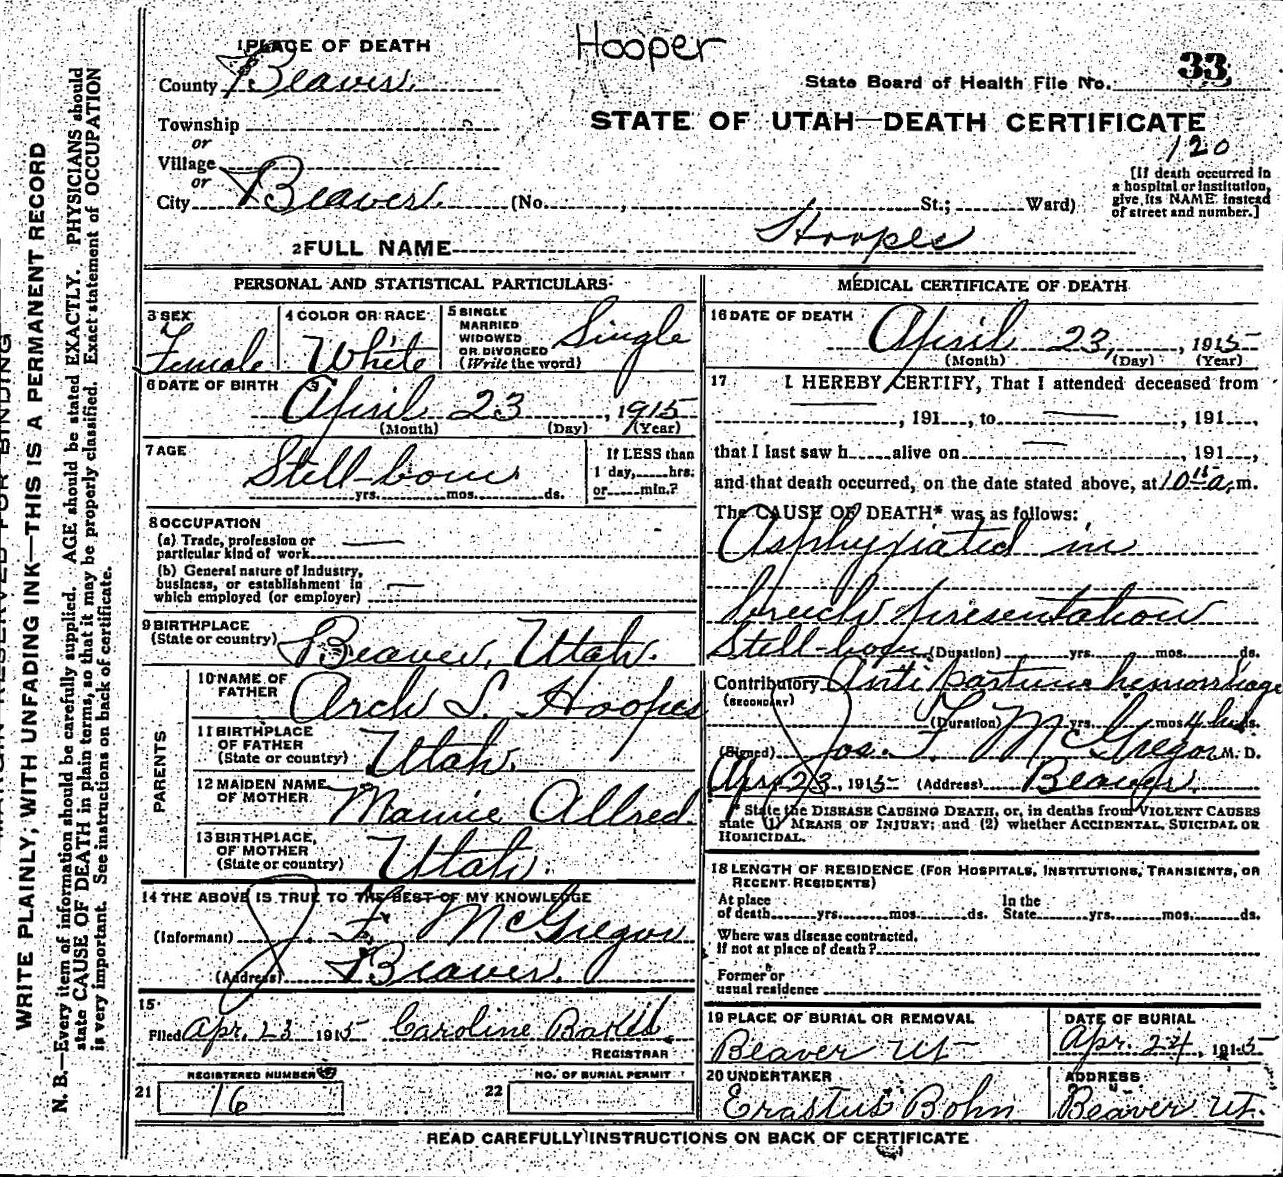 Hooper
1 PLACE OF DEATH
County Beaver
State Board of Health File No. 33
Township
or
STATE OF UTAH—DEATH CERTIFICATE
120
Village
or
City Beaver (No. , St.; Ward)
[If death occurred in
a hospital or institution,
give its NAME instead
of street and number.]
2 FULL NAME Hoopes
PERSONAL AND STATISTICAL PARTICULARS
3 SEX
Female
4 COLOR OR RACE
White
5 SINGLE
MARRIED
WIDOWED
OR DIVORCED
(Write the word)
Single
6 DATE OF BIRTH
April 23, 1915
(Month) (Day) (Year)
7 AGE
Still-born
yrs. mos. ds.
If LESS than
1 day, hrs.
or min.?
8 OCCUPATION
(a) Trade, profession or
particular kind of work —
(b) General nature of industry,
business, or establishment in
which employed (or employer) —
9 BIRTHPLACE
(State or country) Beaver, Utah.
PARENTS
10 NAME OF
FATHER Arch S. Hoopes
11 BIRTHPLACE
OF FATHER
(State or country) Utah.
12 MAIDEN NAME
OF MOTHER Maurice Allred.
13 BIRTHPLACE,
OF MOTHER
(State or country) Utah.
14 THE ABOVE IS TRUE TO THE BEST OF MY KNOWLEDGE
(Informant) J. F. McGregor
(Address) Beaver.
15
Filed Apr. 23 1915 Caroline
REGISTRAR
REGISTERED NUMBER
21 16
NO. OF BURIAL PERMIT
22
MEDICAL CERTIFICATE OF DEATH
16 DATE OF DEATH
April 23, 1915
(Month) (Day) (Year)
17 I HEREBY CERTIFY, That I attended deceased from
— , 191 , to — , 191 ,
that I last saw h alive on — , 191 ,
and that death occurred, on the date stated above, at 10 15 a. m.
The CAUSE OF DEATH* was as follows:
Asphyxiated in
breech presentation
Still-born (Duration) yrs. mos. ds.
Contributory Anti partum hemorrhage
(SECONDARY)
(Duration) yrs. mos. 4 hrs. ds.
(Signed) Jos. F. McGregor M. D.
Apr 23, 1915 (Address) Beaver.
* State the DISEASE CAUSING DEATH, or, in deaths from VIOLENT CAUSES
state (1) MEANS OF INJURY; and (2) whether ACCIDENTAL, SUICIDAL OR
HOMICIDAL.
18 LENGTH OF RESIDENCE (FOR HOSPITALS, INSTITUTIONS, TRANSIENTS, OR
RECENT RESIDENTS)
At place
of death yrs. mos. ds.
In the
State yrs. mos. ds.
Where was disease contracted,
if not at place of death?
Former or
usual residence
19 PLACE OF BURIAL OR REMOVAL
Beaver Ut
DATE OF BURIAL
Apr. 24, 1915
20 UNDERTAKER
Erastus Bohn
ADDRESS
Beaver Ut.
READ CAREFULLY INSTRUCTIONS ON BACK OF CERTIFICATE
MARGIN RESERVED FOR BINDING
WRITE PLAINLY, WITH UNFADING INK—THIS IS A PERMANENT RECORD
N. B.—Every item of information should be carefully supplied. AGE should be stated EXACTLY. PHYSICIANS should
state CAUSE OF DEATH in plain terms, so that it may be properly classified. Exact statement of OCCUPATION
is very important. See instructions on back of certificate.